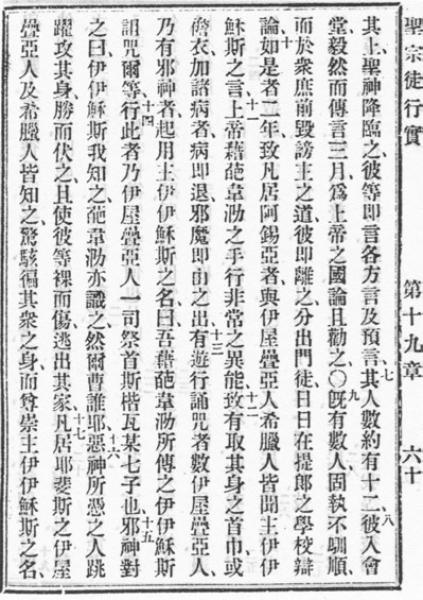 聖宗徒行實 第十九章 六十
其上聖神降臨之、彼等即言各方言及預言、七其人數約有十二、八彼入會
堂、毅然而傳言三月、爲上帝之國論且勸之、○九旣有數人固執不馴順、
而於衆庶前毀謗主之道、彼即離之、分出門徒、日日在提郎之學校辯
論、十如是者二年、致凡居阿錫亞者、與伊屋疊亞人希臘人、皆聞主伊伊
穌斯之言、十一上帝藉葩韋泐之手行非常之異能、十二致有取其身之首巾或
襜衣加諸病者、病即退、邪魔即由之出、十三有遊行誦咒者數伊屋疊亞人、
乃有邪神者、起用主伊伊穌斯之名、曰吾藉葩韋泐所傳之伊伊穌斯
詛咒爾等、十四行此者、乃伊屋疊亞人一司祭首斯楷瓦某七子也、十五邪神對
之曰、伊伊穌斯我知之、葩韋泐亦識之、然爾曹誰耶、十六惡神所憑之人、跳
躍攻其身、勝而伏之、且使彼等裸而傷、逃出其家、十七凡居耶斐斯之伊屋
疊亞人及希臘人皆知之、驚駭徧其衆之身、而尊崇主伊伊穌斯之名、